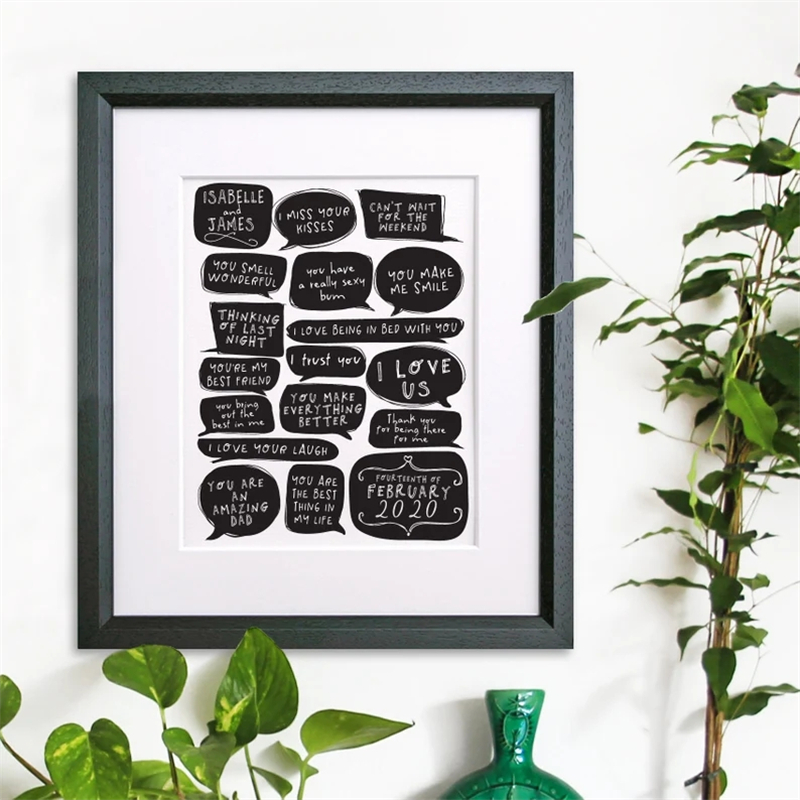 ISABELLE
and
JAMES
I MISS YOUR
KISSES
CAN'T WAIT
FOR THE
WEEKEND
YOU SMELL
WONDERFUL
you have
a really sexy
bum
YOU MAKE
ME SMILE
THINKING
OF LAST
NIGHT
I LOVE BEING IN BED WITH YOU
YOU'RE MY
BEST FRIEND
I trust you
I LOVE
US
you bring
out the
best in me
YOU MAKE
EVERYTHING
BETTER
Thank you
for being there
for me
I LOVE YOUR LAUGH
YOU ARE
AN
AMAZING
DAD
YOU ARE
THE BEST
THING IN
MY LIFE
FOURTEENTH OF
FEBRUARY
2020